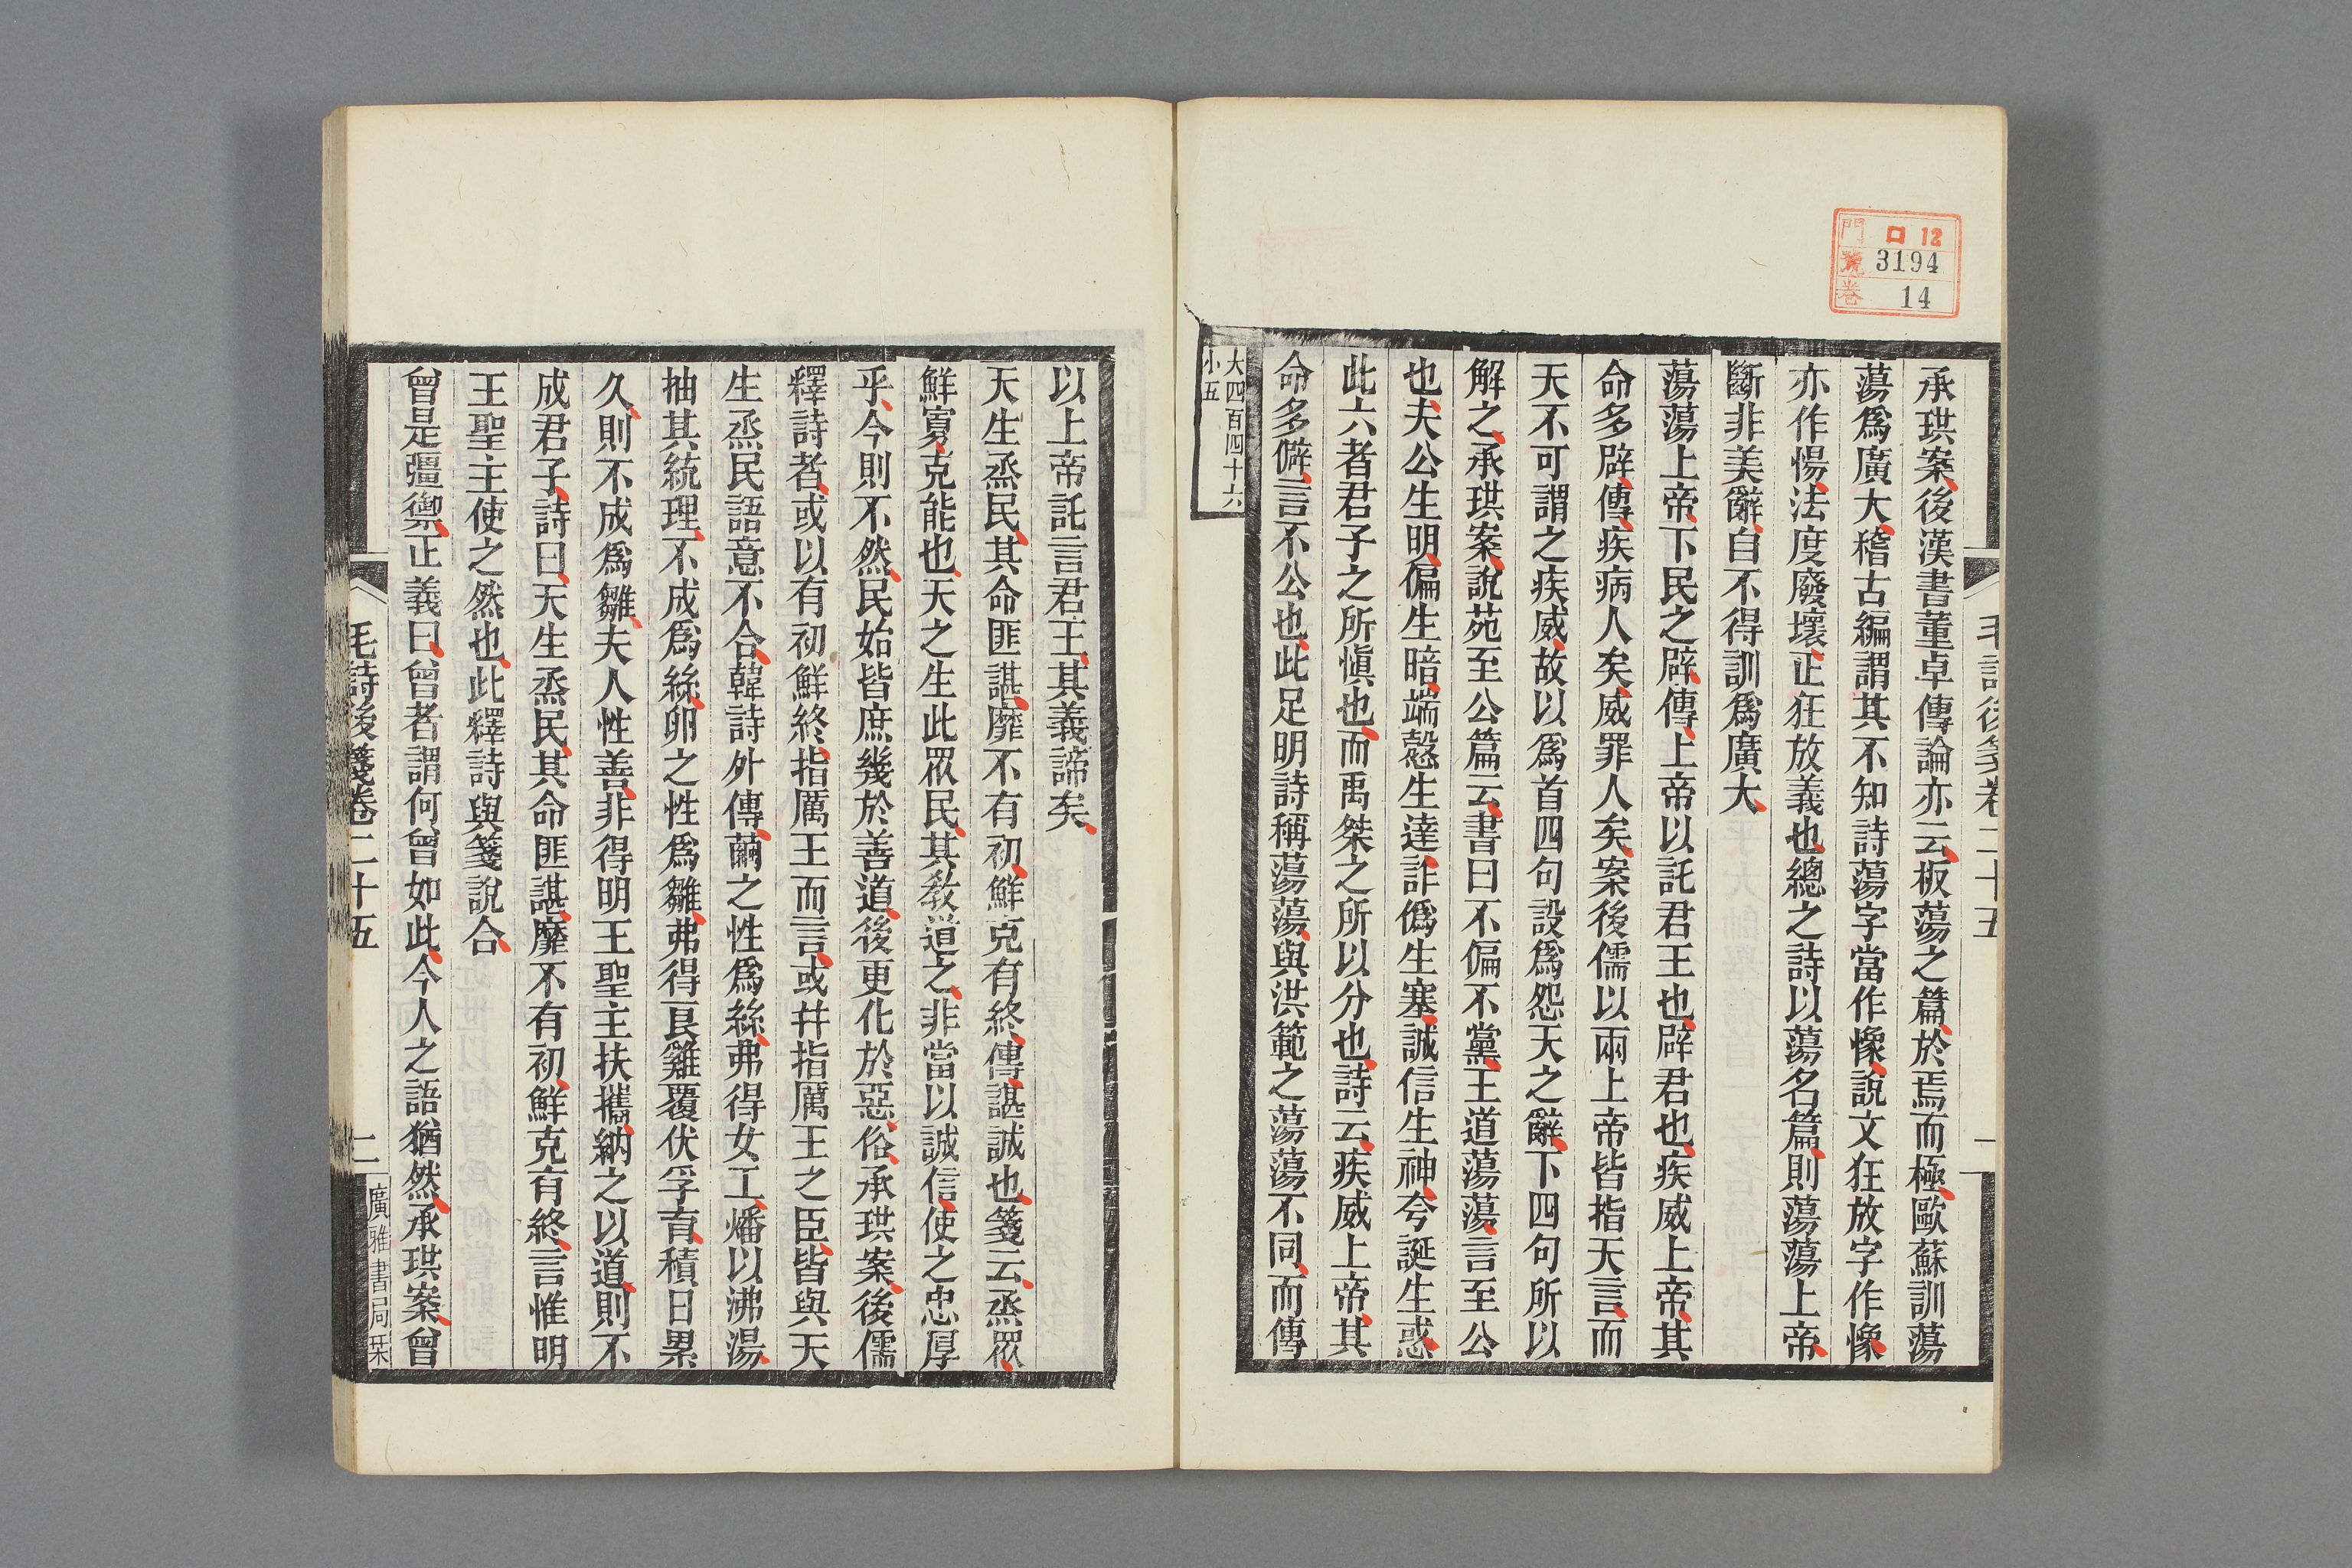 門 口 12
號 3194
卷 14
毛詩後箋卷二十五
一
承珙案後漢書董卓傳論亦云板蕩之篇於焉而極歐蘇訓蕩
蕩爲廣大稽古編謂其不知詩蕩字當作惕說文狂放字作惕
亦作愓法度廢壞正狂放義也總之詩以蕩名篇則蕩蕩上帝
斷非美辭自不得訓爲廣大
蕩蕩上帝下民之辟傳上帝以託君王也辟君也疾威上帝其
命多辟傳疾病人矣威罪人矣案後儒以兩上帝皆指天言而
天不可謂之疾威故以爲首四句設爲怨天之辭下四句所以
解之承珙案說苑至公篇云書曰不偏不黨王道蕩蕩言至公
也夫公生明偏生暗端慤生達詐僞生塞誠信生神夸誕生惑
此六者君子之所愼也而禹桀之所以分也詩云疾威上帝其
命多僻言不公也此足明詩稱蕩蕩與洪範之蕩蕩不同而傳
大四百四十六
小五
以上帝託言君王其義諦矣
天生烝民其命匪諶靡不有初鮮克有終傳諶誠也箋云烝眾
鮮寡克能也天之生此眾民其敎道之非當以誠信使之忠厚
乎今則不然民始皆庶幾於善道後更化於惡俗承珙案後儒
釋詩者或以有初鮮終指厲王而言或幷指厲王之臣皆與天
生烝民語意不合韓詩外傳繭之性爲絲弗得女工燔以沸湯
抽其統理不成爲絲卵之性爲雛弗得良雞覆伏孚育積日累
久則不成爲雛夫人性善非得明王聖主扶攜納之以道則不
成君子詩曰天生烝民其命匪諶靡不有初鮮克有終言惟明
王聖主使之然也此釋詩與箋說合
曾是彊禦正義曰曾者謂何曾如此今人之語猶然承珙案曾
毛詩後箋卷二十五
二
廣雅書局栞